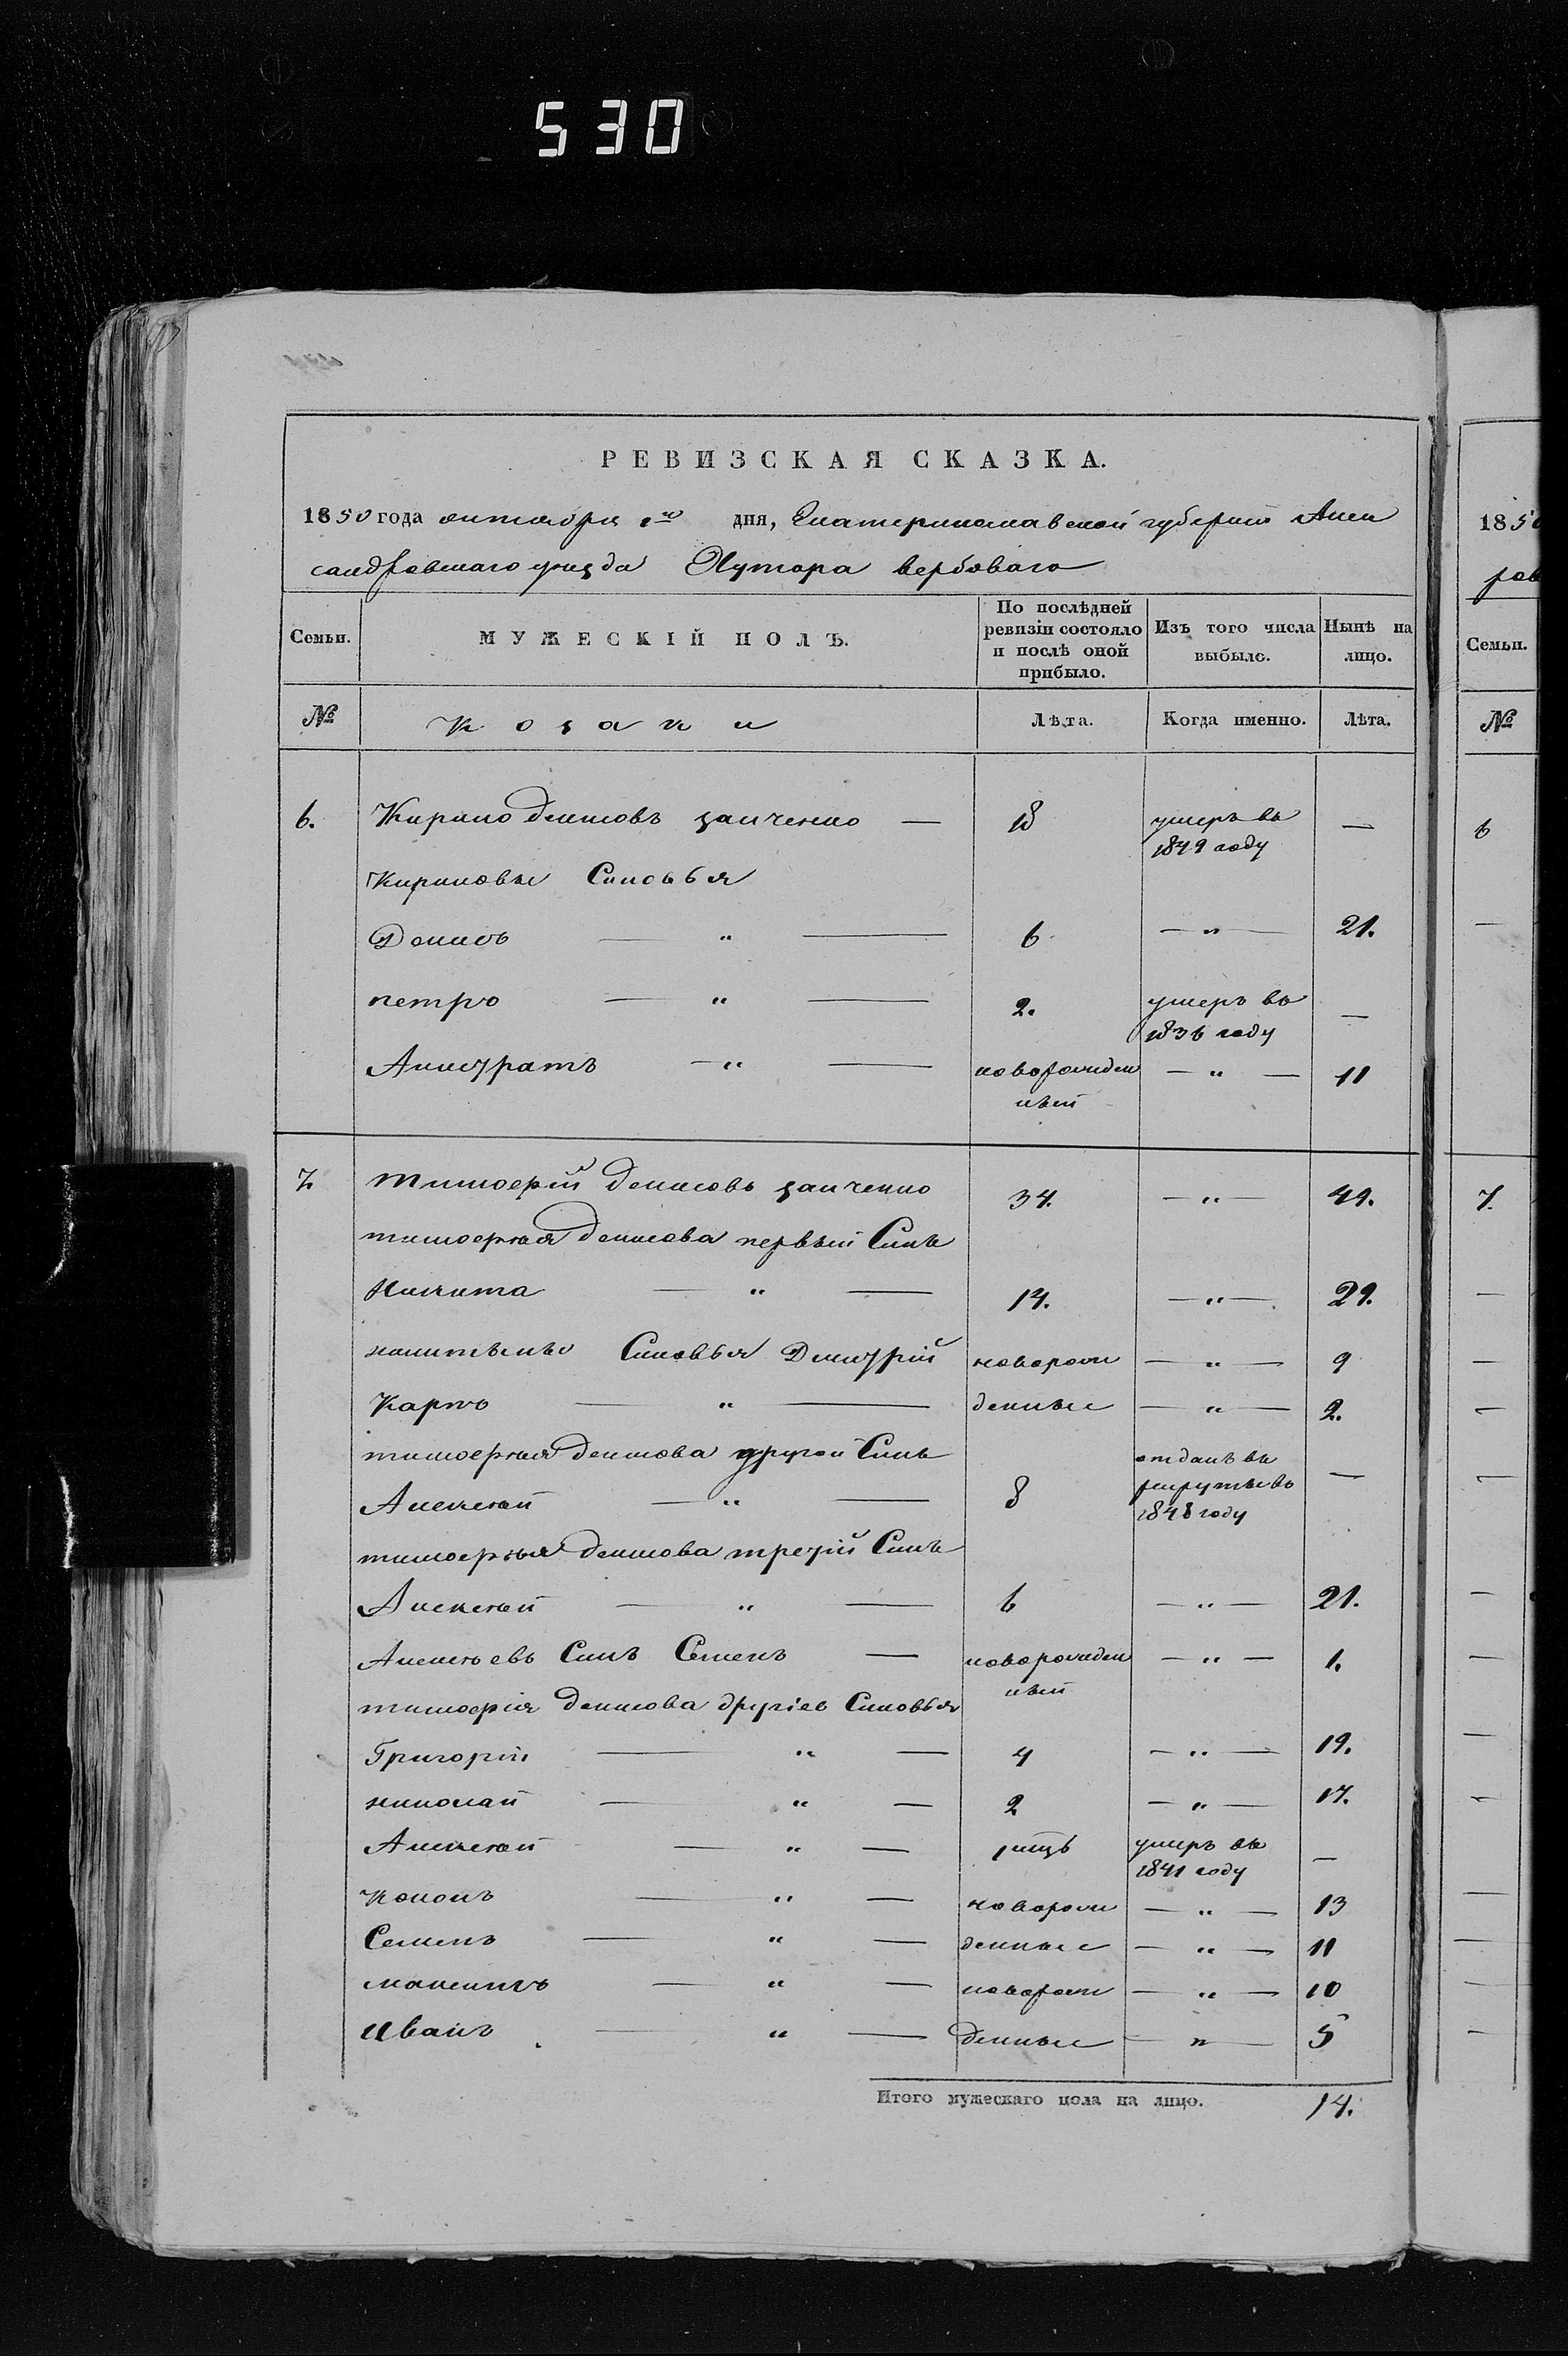 530
РЕВИЗСКАЯ СКАЗКА.
1850 года октября 1го дня, Екатеринославской губернии Алек
сандровскаго уезда Хутора вербоваго
Семьи. МУЖЕСКІЙ ПОЛЪ. По послѣдней ревизіи состояло и послѣ оной прибыло. Изъ того числа выбыло. Нынѣ на лицо.
№ Козаки Лѣта. Когда именно. Лѣта.
6. Кирило Денисовъ заиченко — 18 умеръ въ 1849 году —
Кириловы Синовья
Денисъ — " — 6 — " — 21.
петро — " — 2. умеръ въ 1836 году —
Анистратъ — " — новорожден ный — " — 11
7. тимофей Денисовъ заиченко 34. — " — 49.
тимофея Денисова первый Синъ
Никита — " — 14. — " — 29.
никитины Синовья Дмитрій новорож — " — 9
Карпъ — " — денные — " — 2.
тимофея Денисова другой Синъ
Алексей — " — 8 отданъ въ рекруты въ 1848 году —
тимофея Денисова третій Синъ
Алексей — " — 6 — " — 21.
Алексеевъ Синъ Семенъ — новорожден ный — " — 1.
тимофея Денисова Синовья
Григорій — " — 4 — " — 19.
николай — " — 2 — " — 17.
Алексей — " — умеръ въ 1841 году —
Кононъ — " — новорож — " — 13
Семенъ — " — денные — " — 11
максимъ — " — новорож — " — 10
Иванъ — " — денные — " — 5
Итого мужескаго пола на лицо. 14.
185
ров
Семьи.
№
6
7.